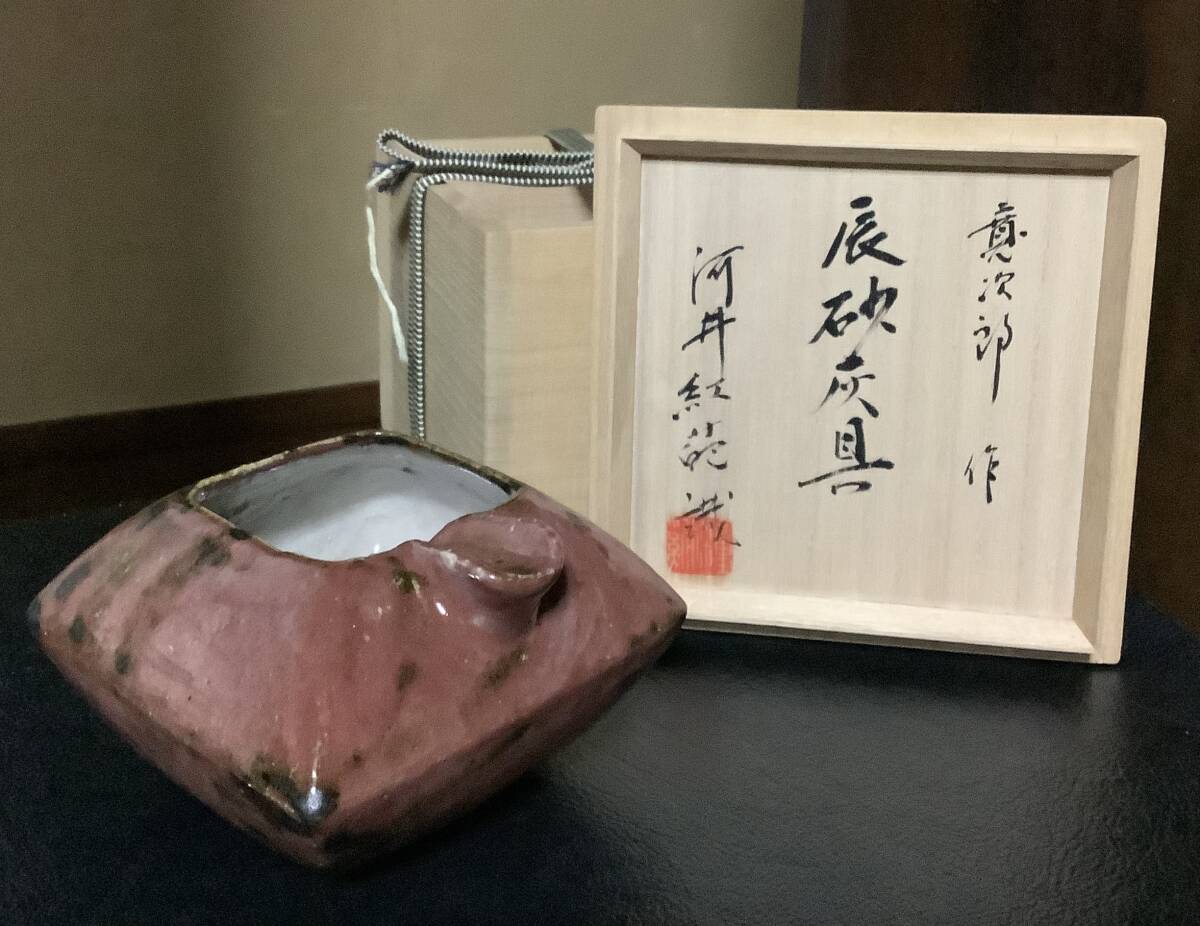 寛次郎 作
辰砂灰具
河井紅葩識